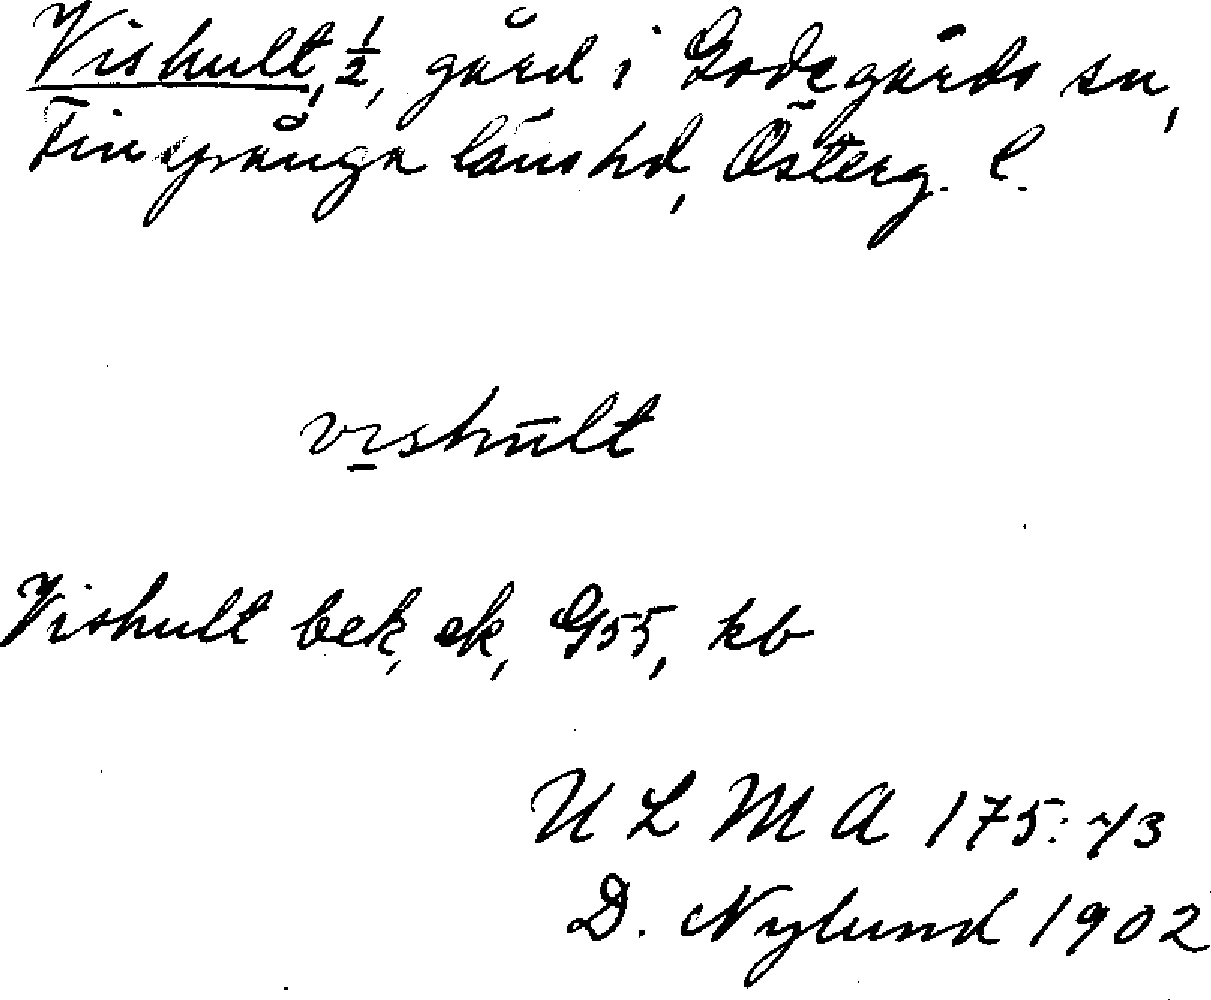 Vishult, 1/2, gård i Godegårds sn,
Finspånga läns hd, Österg. l.
vishult
Vishult bek, ek, G55, kb
U L M A 175: 73
D. Nylund 1902